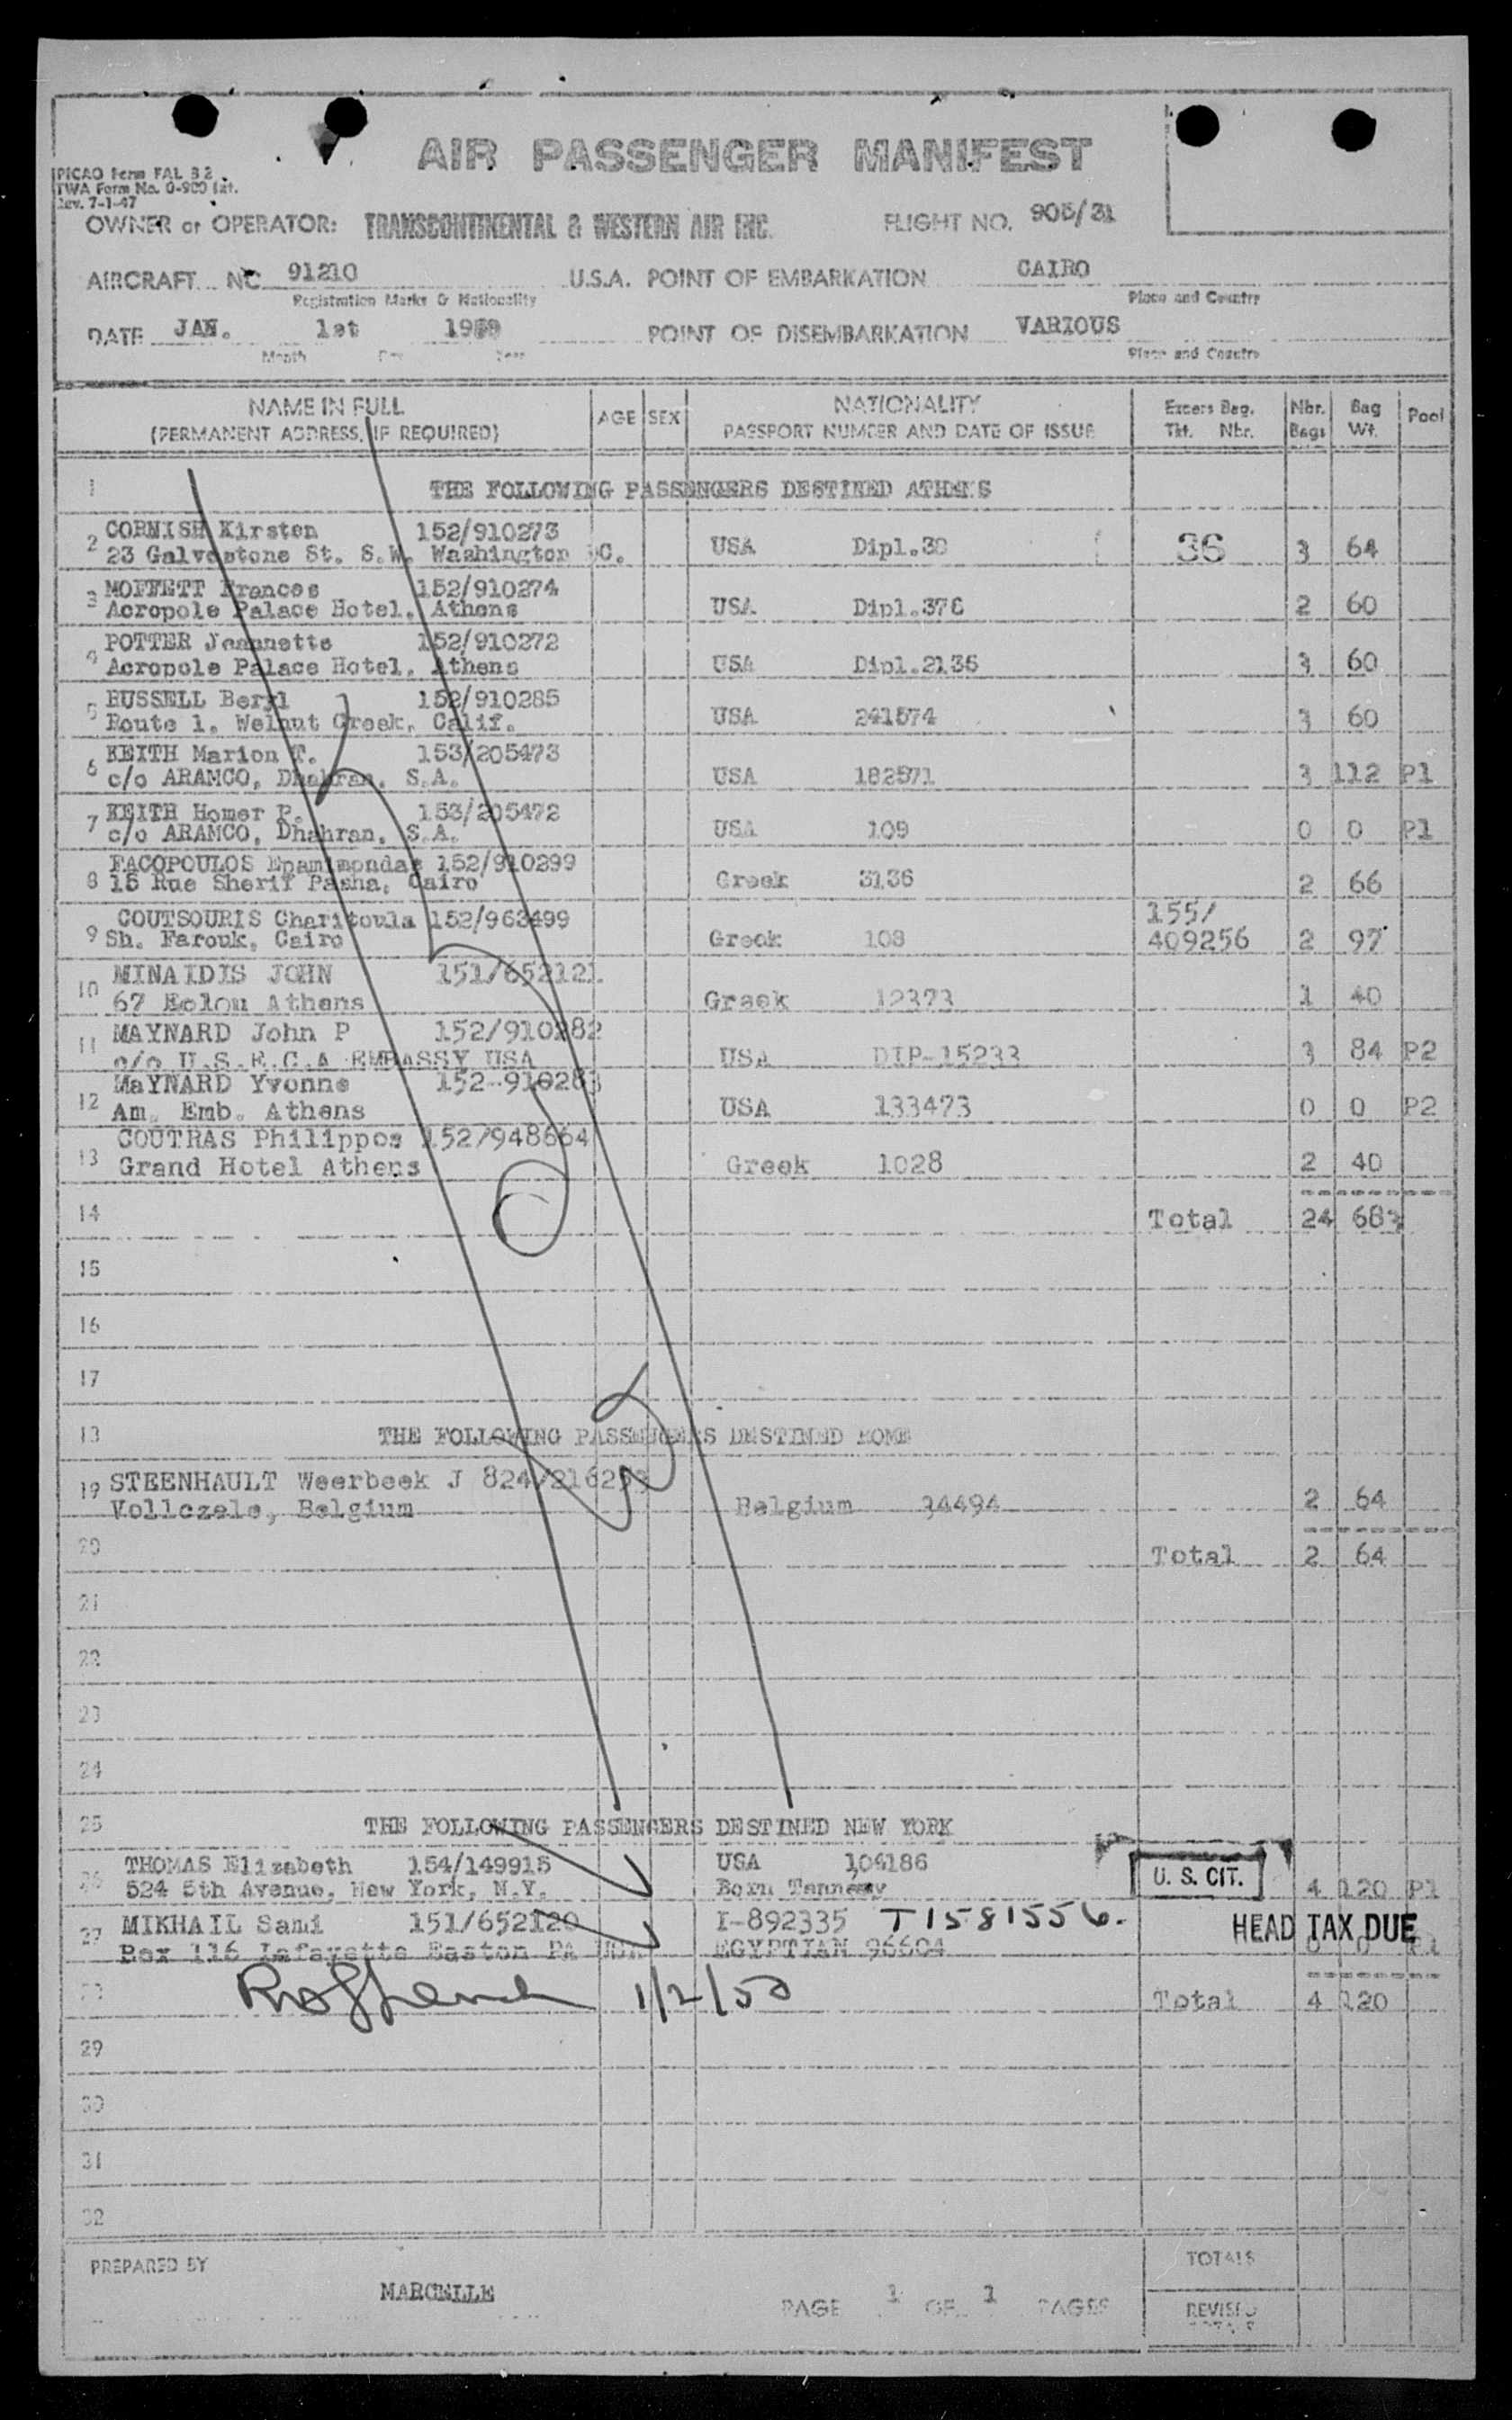 AIR PASSENGER MANIFEST
PICAO Form FAL 3 2
TWA Form No. 0-900 Int.
Rev. 7-1-47
OWNER or OPERATOR: TRANSCONTINENTAL & WESTERN AIR INC. FLIGHT NO. 905/31
AIRCRAFT NC 91210 U.S.A. POINT OF EMBARKATION CAIRO
Registration Marks & Nationality Place and Country
DATE JAN. 1st POINT OF DISEMBARKATION VARIOUS
Month Day Year Place and Country
NAME IN FULL AGE SEX NATIONALITY Excess Bag. Nbr. Bag Pool
(PERMANENT ADDRESS, IF REQUIRED) PASSPORT NUMBER AND DATE OF ISSUE Tkt. Nbr. Bags Wt.
1 THE FOLLOWING PASSENGERS DESTINED ATHENS
2 CORNISH Kirsten 152/910273
23 Galvestone St. S.W. Washington DC. USA Dipl. 36 3 64
3 MOFFETT Frances 152/910274
Acropole Palace Hotel, Athens USA Dipl.376 2 60
4 POTTER Jeannette 152/910272
Acropole Palace Hotel, Athens USA Dipl.2136 3 60
5 RUSSELL Beryl 152/910285
Route 1, Welnut Creek, Calif. USA 241574 3 60
6 KEITH Marion T. 153/205473
c/o ARAMCO, Dhahran, S.A. USA 182571 3 112 P1
7 KEITH Homer P. 153/205472
c/o ARAMCO, Dhahran, S.A. USA 109 0 0 P1
8 FACOPOULOS Epamimondas 152/910299
15 Rue Sherif Pasha, Cairo Greek 3136 2 66
9 COUTSOURIS Charitoula 152/963499 155/
Sh. Farouk, Cairo Greek 108 409256 2 97
10 MINAIDIS JOHN 151/652121
67 Eolou Athens Greek 12373 1 40
11 MAYNARD John P 152/910282
c/o U.S.E.C.A EMBASSY USA USA DIP-15233 3 84 P2
12 MaYNARD Yvonne 152-910283
Am. Emb. Athens USA 133473 0 0 P2
13 COUTRAS Philippos 152/948664
Grand Hotel Athens Greek 1028 2 40
14 Total 24 683
15
16
17
18 THE FOLLOWING PASSENGERS DESTINED ROME
19 STEENHAULT Weerbeek J
Vollezele, Belgium Belgium 34494 2 64
20 Total 2 64
21
22
23
24
25 THE FOLLOWING PASSENGERS DESTINED NEW YORK
26 THOMAS Elizabeth 154/149915 USA 104186
524 5th Avenue, New York, N.Y. Born U. S. CIT. 4 120 P1
27 MIKHAIL Sami 151/652120 I-892335 T1581556.
Box 116 Lafayette Easton PA USA EGYPTIAN 96604 HEAD TAX DUE
28 1/2/50 Total 4 120
29
30
31
32
PREPARED BY TOTALS
MARCELLE
PAGE 1 OF 1 PAGES REVISED
TOTALS